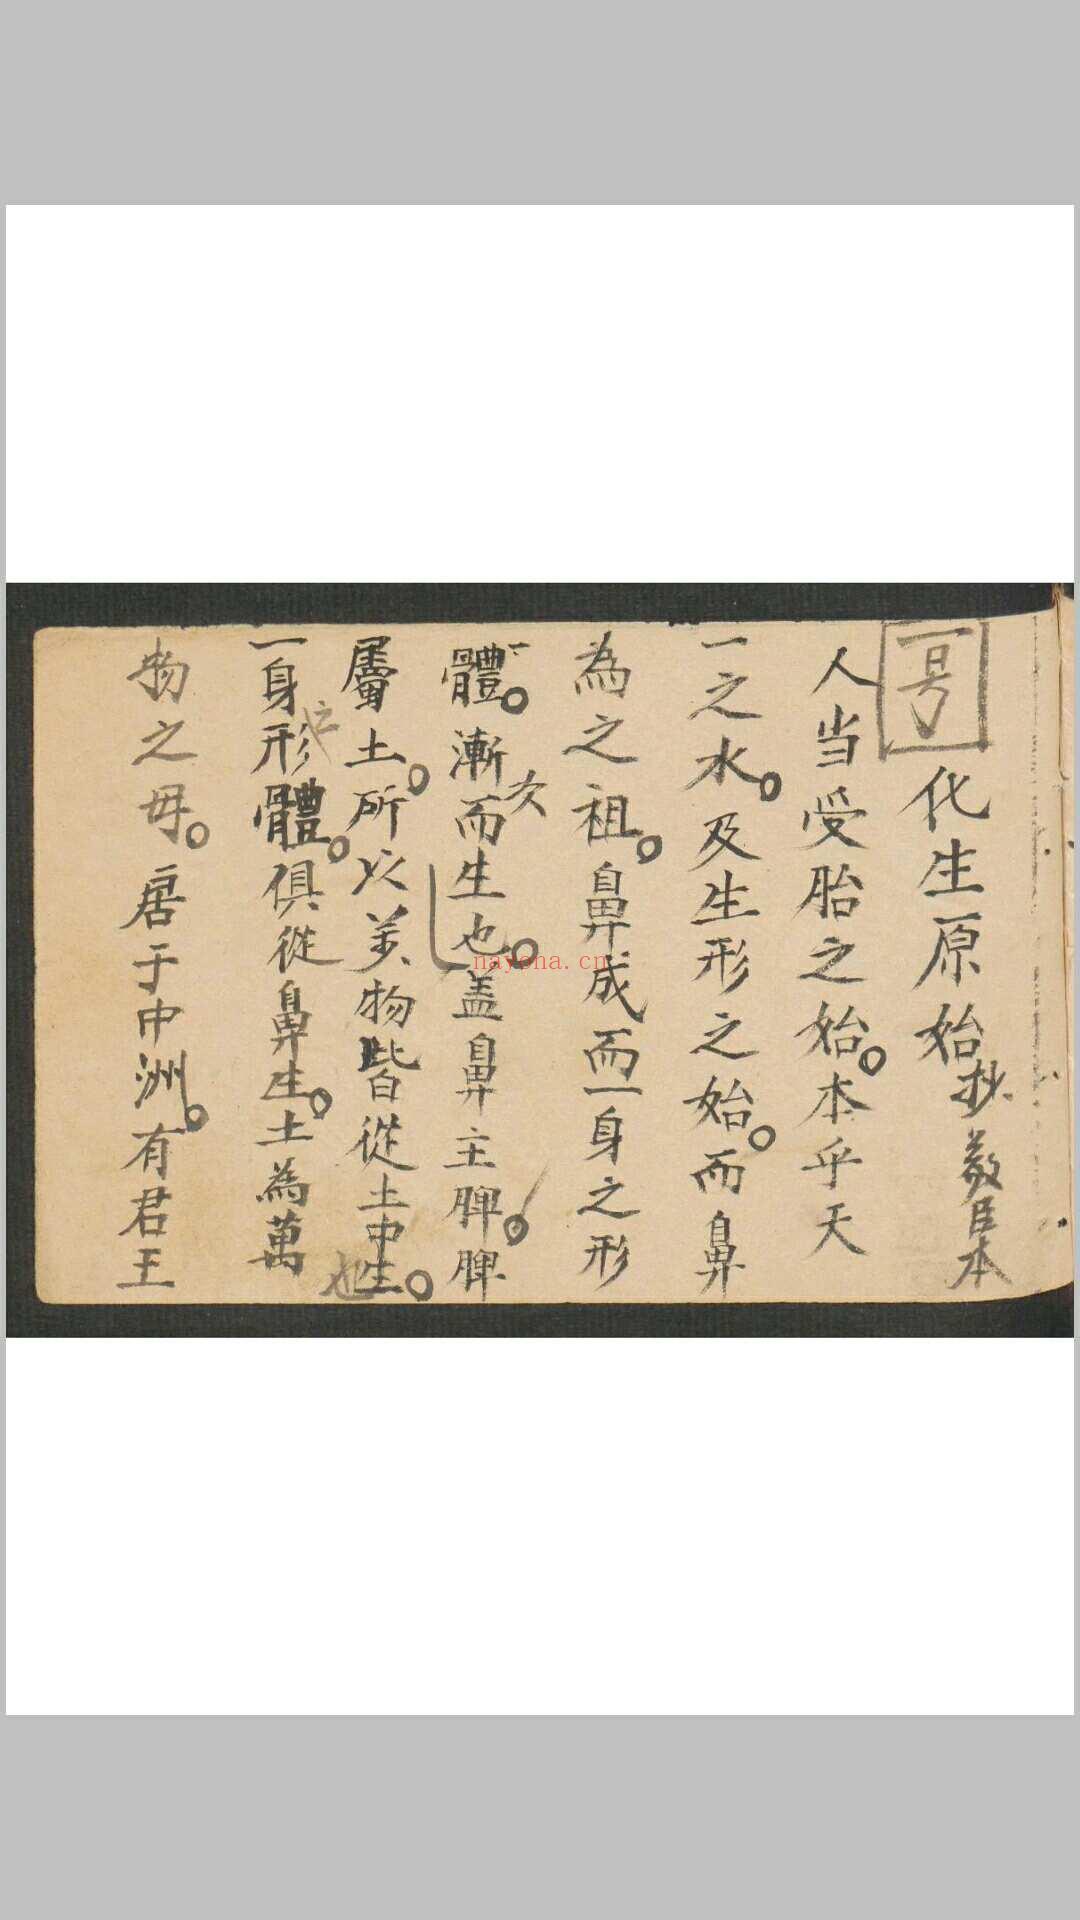 一号
化生原始抄
敬臣本
人当受胎之始。本乎天
一之水。及生形之始。而鼻
為之祖。鼻成而一身之形
體。漸次而生也。盖鼻主脾。脾
屬土。所以萬物皆從土中生。也
一身形體。俱從鼻生。土為萬
物之母。居于中洲。有君王
nayona.cn